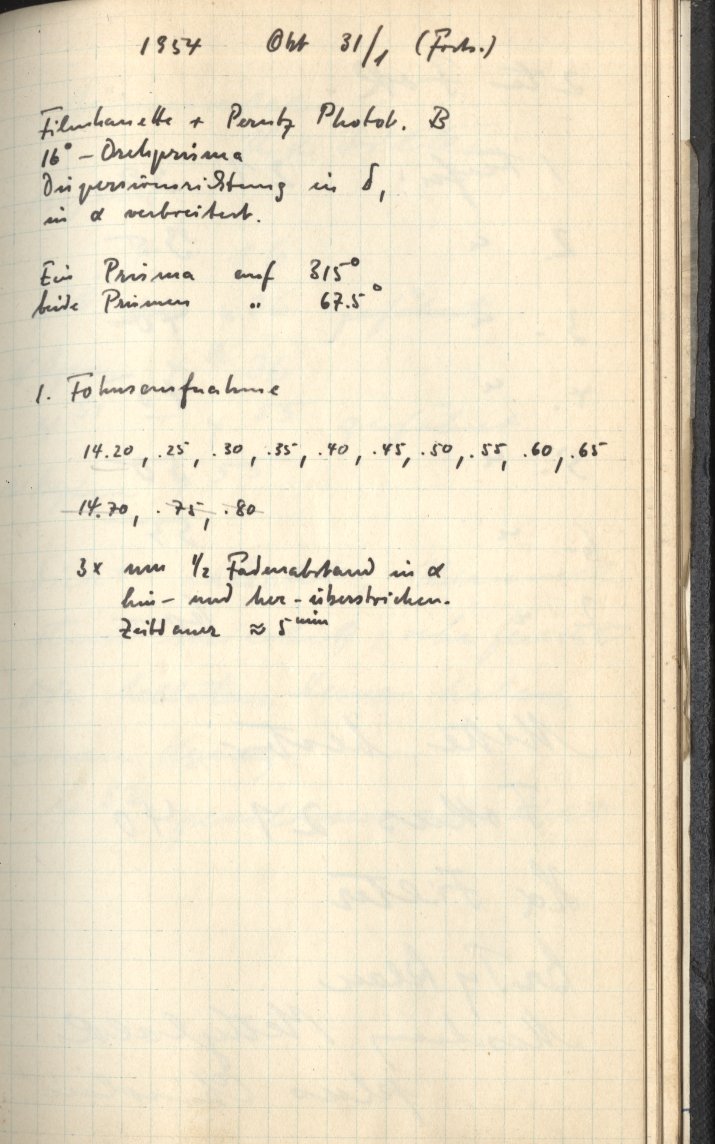 1954 Okt 31/1 (Forts.)
Filmkassette + Perutz Photot. B
16° – Drehprisma
Dispersionsrichtung in δ,
in α verbreitert.
Ein Prisma auf 315°
beide Prismen " 67.5°
1. Fokusaufnahme
14.20, .25, .30, .35, .40, .45, .50, .55, .60, .65
14.70, .75, .80
3x um 1/2 Fadenabstand in α
hin- und her-überstrichen.
Zeitdauer ≈ 5 min